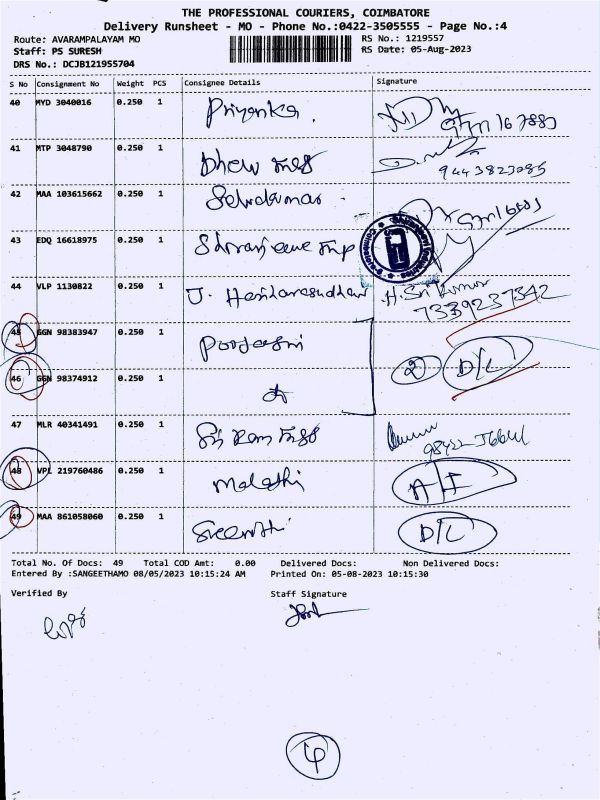 THE PROFESSIONAL COURIERS, COIMBATORE
Delivery Runsheet - MO - Phone No.:0422-3505555 - Page No.:4
Route: AVARAMPALAYAM MO RS No.: 1219557
Staff: PS SURESH RS Date: 05-Aug-2023
DRS No.: DCJB121955704
S No Consignment No Weight PCS Consignee Details Signature
40 MYD 3040016 0.250 1 Priyanka.
41 MTP 3048790 0.250 1
9443823085
42 MAA 103615662 0.250 1 Selvakumar
43 EDQ 16618975 0.250 1
44 VLP 1130822 0.250 1 J. H.Sri kumar
7339237342
45 GGN 98383947 0.250 1
46 GGN 98374912 0.250 1 2 D/L
47 MLR 40341491 0.250 1
48 VPL 219760486 0.250 1 Malathi
49 MAA 861058060 0.250 1 D/L
Total No. Of Docs: 49 Total COD Amt: 0.00 Delivered Docs: Non Delivered Docs:
Entered By :SANGEETHAMO 08/05/2023 10:15:24 AM Printed On: 05-08-2023 10:15:30
Verified By Staff Signature
4